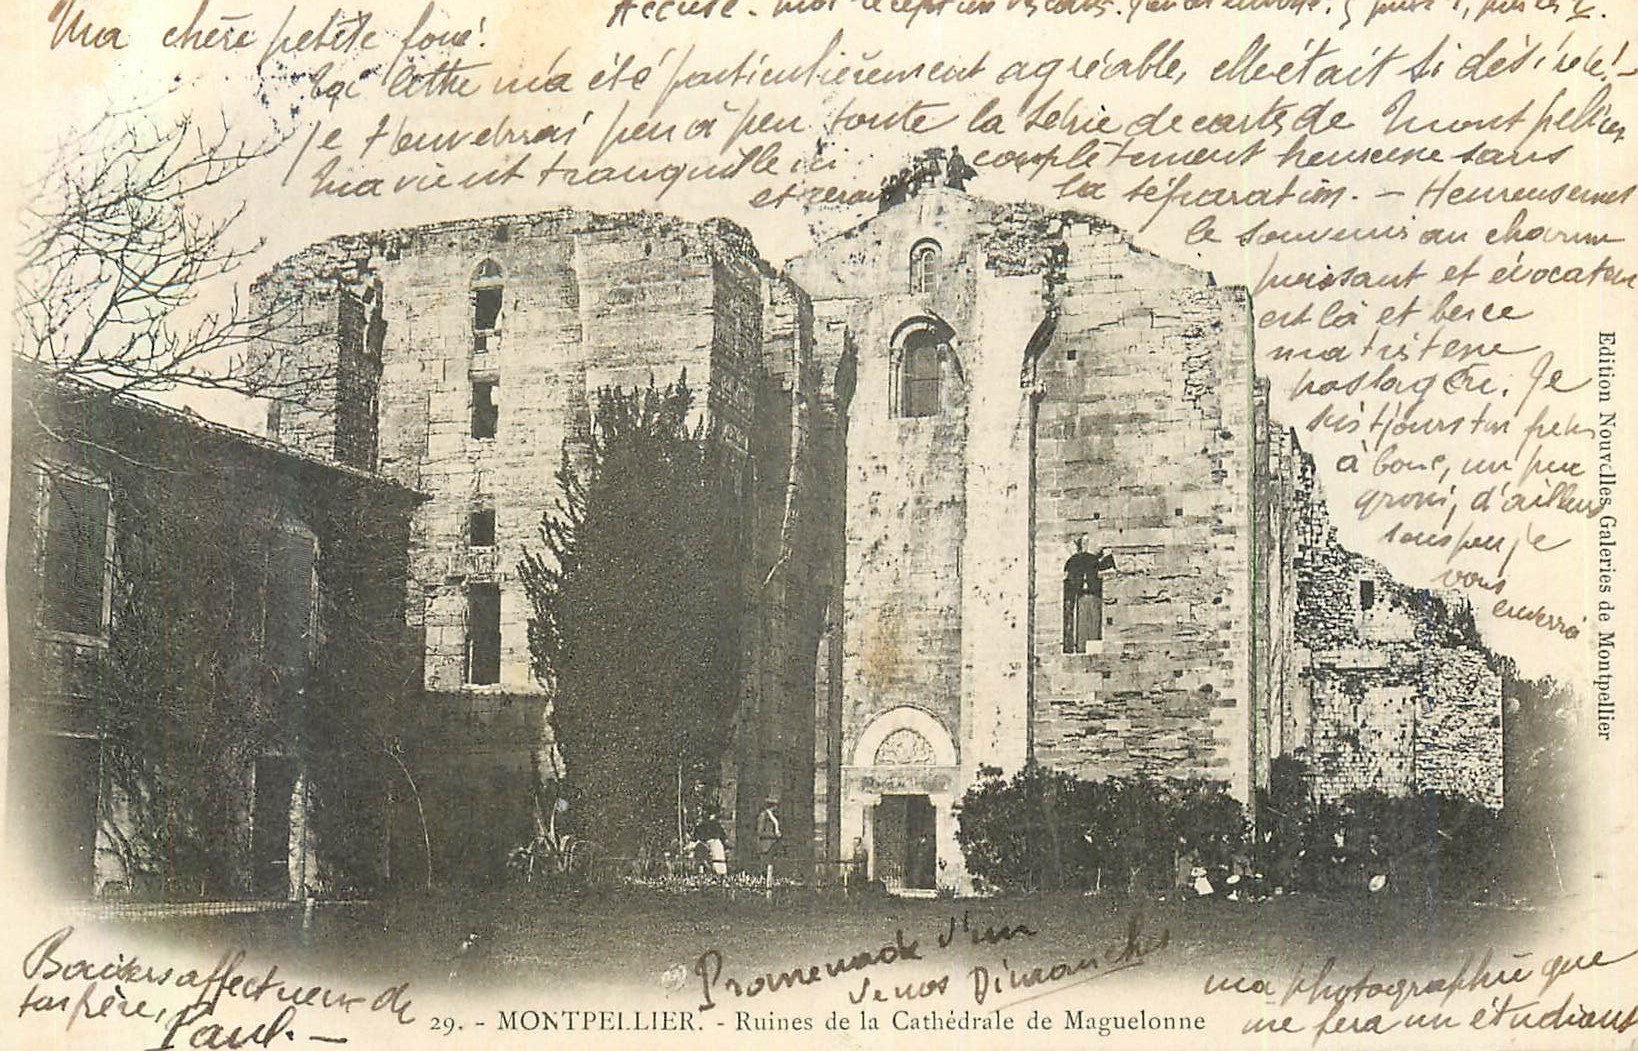 Accuse - moi réception
Ma chère petite
ta lettre m'a été particulièrement agréable, elle était si désirée! -
Je t'enverrai peu à peu toute la série de cartes de Montpellier
Ma vie est tranquille ici
et serait
complètement heureuse sans
la séparation. - Heureusement
le souvenir au charme
puissant et évocateur
est là et berce
ma tristesse
nostalgère. Je
suis tjours un peu
à bouc, un peu
grossi, d'ailleurs
sous peu je
vous
enverrai
ma photographie que
me fera un étudiant
Promenade d'un
de nos Dimanches
Baisers affectueux de
ton frère,
Paul. -
29. - MONTPELLIER. - Ruines de la Cathédrale de Maguelonne
Edition Nouvelles Galeries de Montpellier